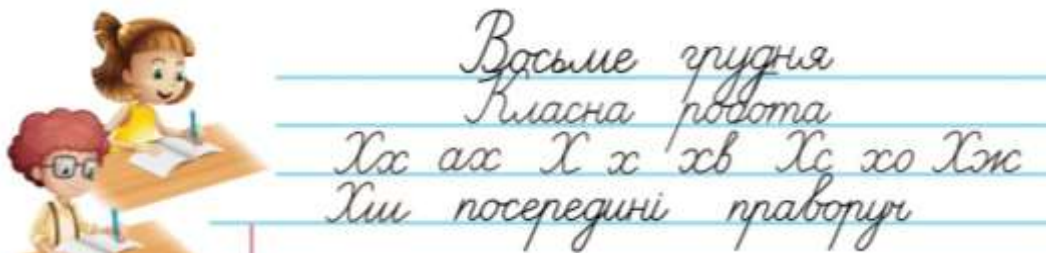 Восьме грудня
Класна робота
Хх ах Х х хв Хс хо Хж
Хш посередині праворуч